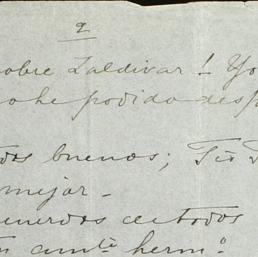 2
sobre Zaldivar! Yo
no he podido desp
dos buenos; Tio
mejor.
cuerdos de todos
amte. hermo.